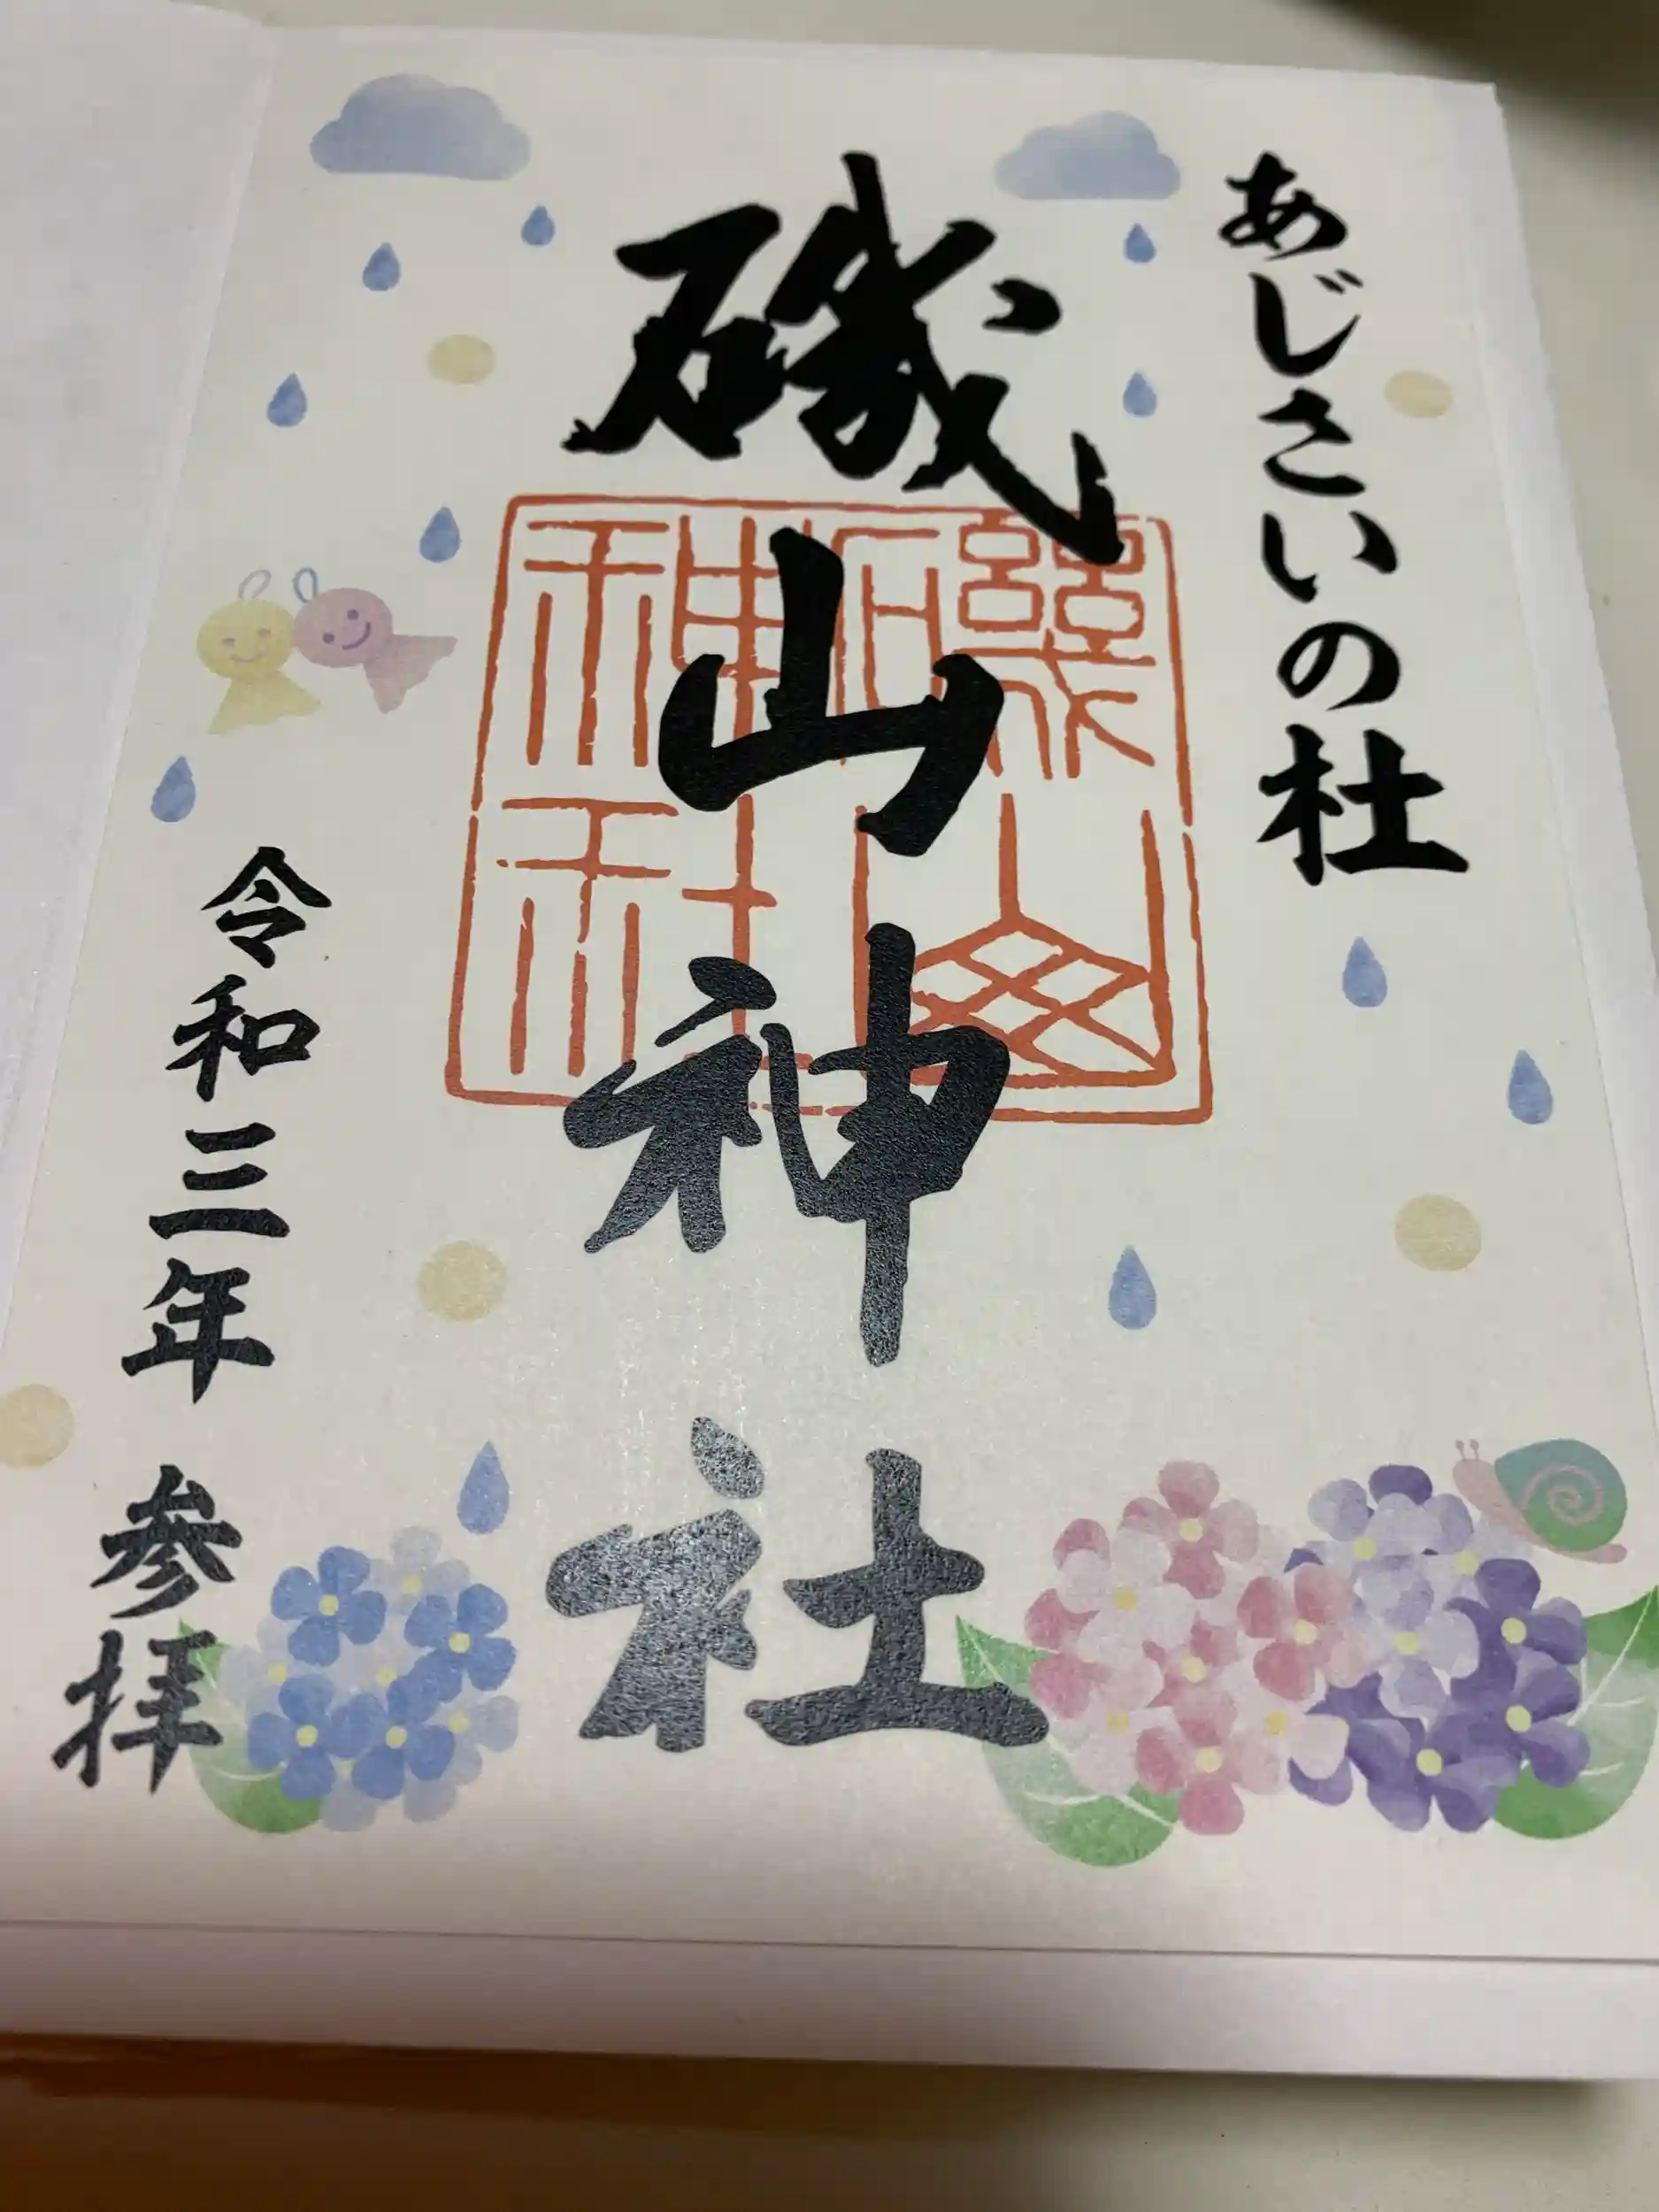 あじさいの杜
磯山神社
令和三年 参拝
磯山
神社